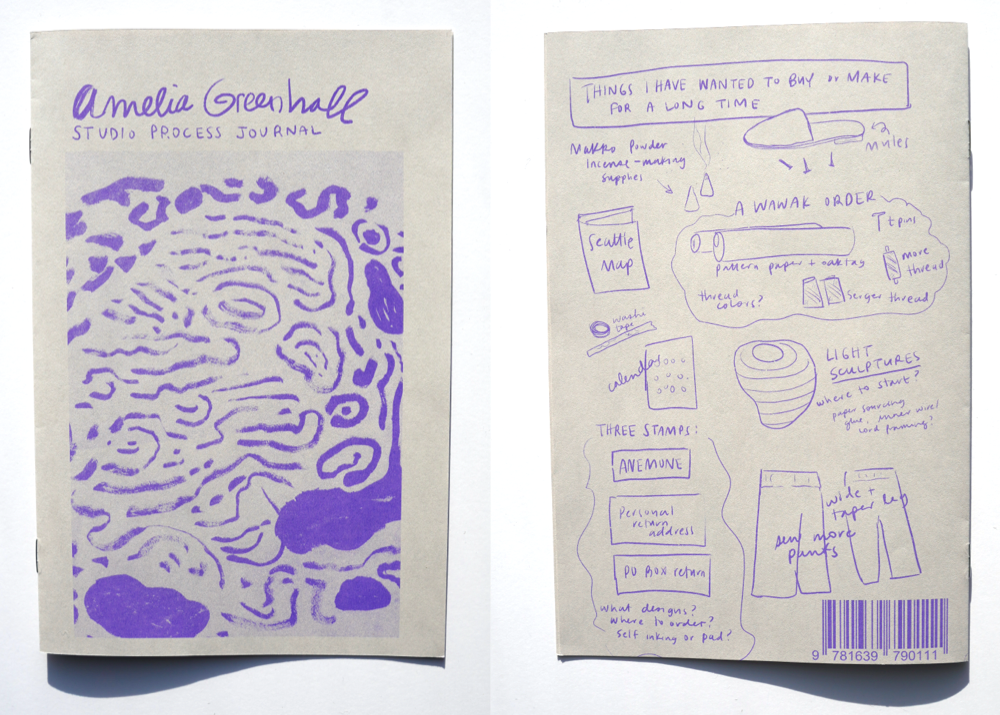 Amelia Greenhall
STUDIO PROCESS JOURNAL
THINGS I HAVE WANTED TO BUY or MAKE
FOR A LONG TIME
Makko Powder
Incense-making
supplies
mules
Seattle
Map
A WAWAK ORDER
T pins
pattern paper + oaktag
more
thread
thread
colors?
Serger thread
washi
tape
calendar
LIGHT
SCULPTURES
where to start?
paper sourcing
glue, inner wire?
cord framing?
THREE STAMPS:
ANEMONE
Personal
return
address
PO BOX return
what designs?
where to order?
self inking or pad?
wide +
taper leg
sew more
pants
9 781639 790111